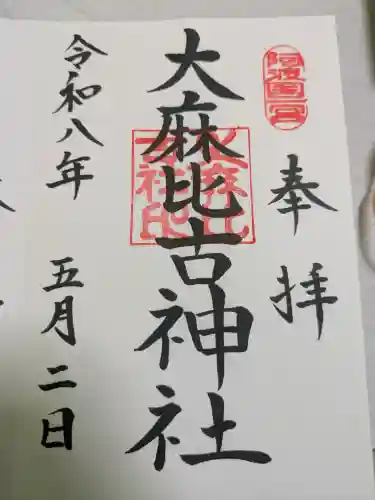 阿波国一宮
奉拝
大麻比古神社
令和八年 五月二日